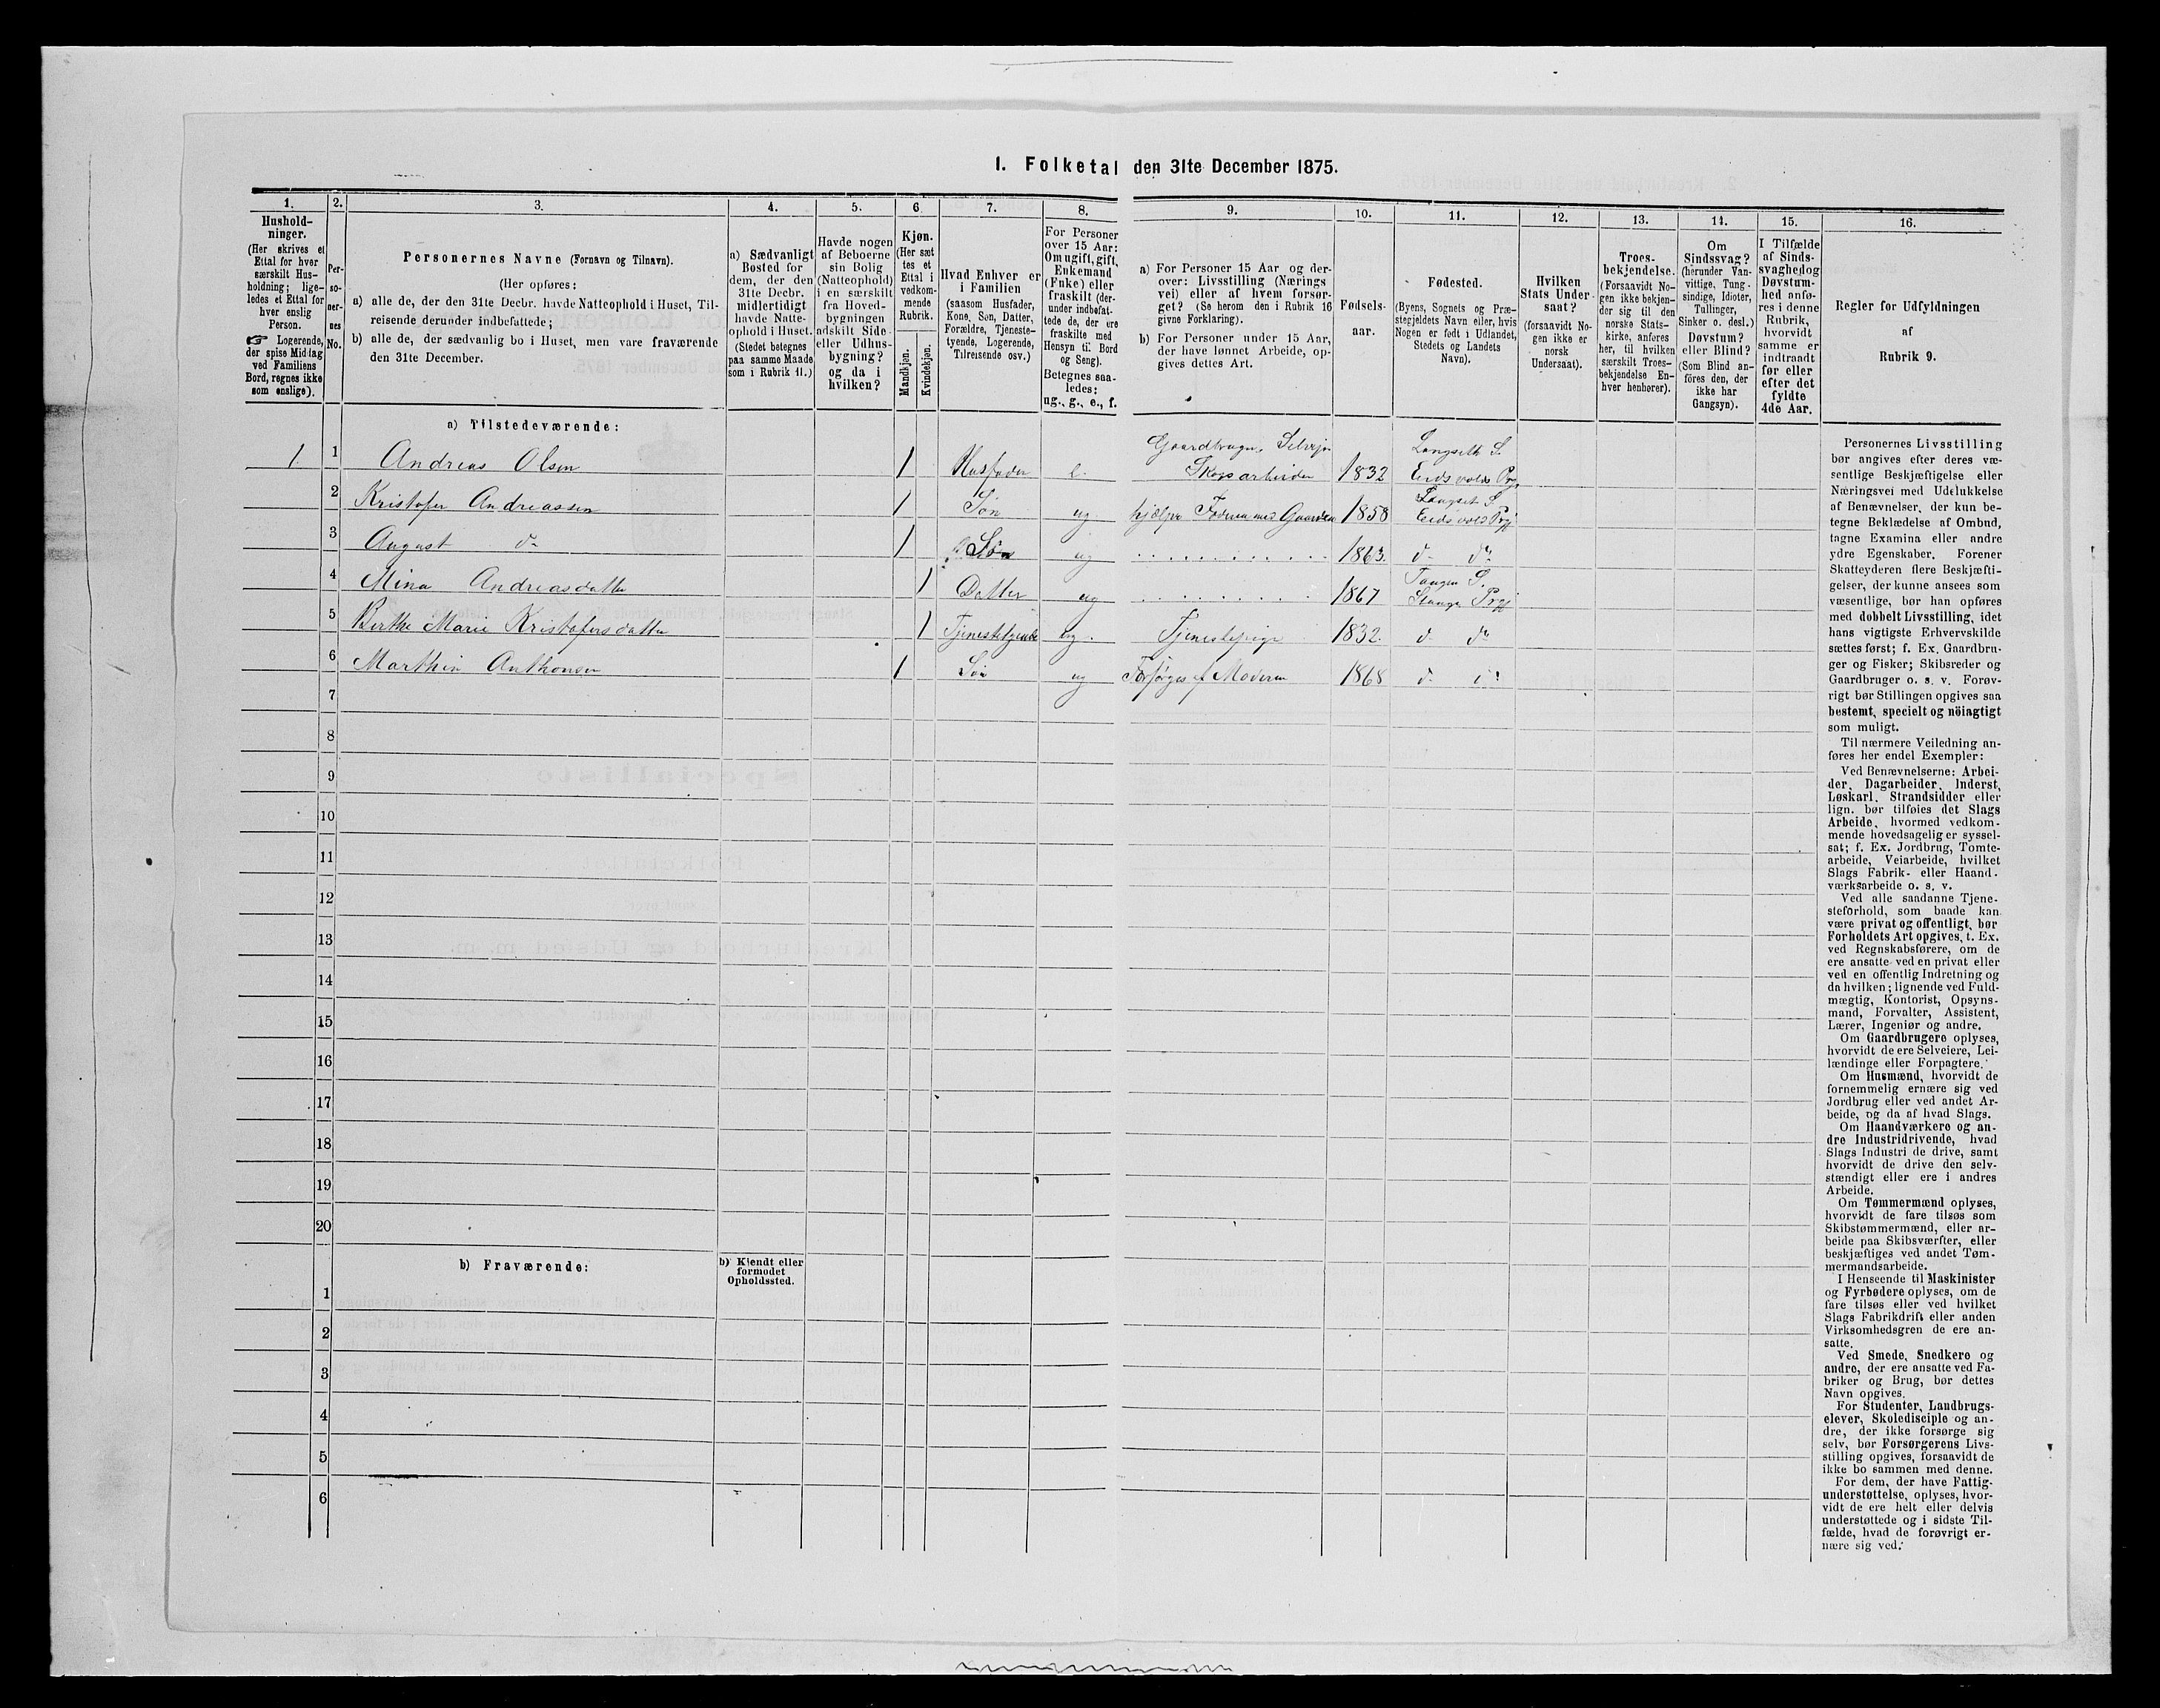 I. Folketal den 31te December 1875.
1.
Hushold-
ninger.
(Her skrives et
Ettal for hver
særskilt Hus-
holdning; lige-
ledes et Ettal for
hver enslig
Person.
☞ Logerende,
der spise Middag
ved Familiens
Bord, regnes ikke
som enslige).
2.
Per-
so-
ner-
nes
No.
3.
Personernes Navne (Fornavn og Tilnavn).
(Her opføres:
a) alle de, der den 31te Decbr. havde Natteophold i Huset, Til-
reisende derunder indbefattede;
b) alle de, der sædvanlig bo i Huset, men vare fraværende
den 31te December.
4.
a) Sædvanligt
Bosted for
dem, der den
31te Decbr.
midlertidigt
havde Natte-
ophold i Huset.
(Stedet betegnes
paa samme Maade
som i Rubrik 11.)
5.
Havde nogen
af Beboerne
sin Bolig
(Natteophold)
i en særskilt
fra Hoved-
bygningen
adskilt Side-
eller Udhus-
bygning?
og da i
hvilken?
6.
Kjøn.
(Her sæt-
tes et
Ettal i
vedkom-
mende
Rubrik.
Mandkjøn.
Kvindekjøn.
7.
Hvad Enhver er
i Familien
(saasom Husfader,
Kone, Søn, Datter,
Forældre, Tjeneste-
tyende, Logerende,
Tilreisende osv.)
8.
For Personer
over 15 Aar:
Om ugift, gift,
Enkemand
(Enke) eller
fraskilt (der-
under indbefat-
tede de, der ere
fraskilte med
Hensyn til Bord
og Seng).
Betegnes saa-
ledes:
ug., g., e., f.
9.
a) For Personer 15 Aar og der-
over: Livsstilling (Nærings
vei) eller af hvem forsør-
get? (Se herom den i Rubrik 16
givne Forklaring).
b) For Personer under 15 Aar,
der have lønnet Arbeide, op-
gives dettes Art.
10.
Fødsels-
aar.
11.
Fødested.
(Byens, Sognets og Præ-
stegjeldets Navn eller, hvis
Nogen er født i Udlandet,
Stedets og Landets
Navn).
12.
Hvilken
Stats Under-
saat?
(forsaavidt No-
gen ikke er
norsk
Undersaat).
13.
Troes-
bekjendelse.
(Forsaavidt No-
gen ikke bekjen-
der sig til den
norske Stats-
kirke, anføres
her, til hvilken
særskilt Troes-
bekjendelse En-
hver henhører).
14.
Om
Sindssvag?
(herunder Van-
vittige, Tung-
sindige, Idioter,
Tullinger,
Sinker o. desl.)
Døvstum?
eller Blind?
(Som Blind an-
føres den, der
ikke har
Gangsyn).
15.
I Tilfælde
af Sinds-
svaghed og
Døvstum-
hed anfø-
res i denne
Rubrik,
hvorvidt
samme er
indtraadt
før eller
efter det
fyldte
4de Aar.
16.
Regler for Udfyldningen
af
Rubrik 9.
a) Tilstedeværende:
1 1 Andreas Olsen 1 Husfader e. Gaardbruger, Skogsarbeider 1832 Langseth S. Eidsvolds Prgj
2 Kristofer Andreassen 1 Søn ug hjælper Faderen med Gaarden 1858 Langset S. Eidsvold Prgj
3 August do 1 Søn ug 1863. do do
4 Mina Andreasdatter 1 Datter ug 1867 Tangen S. Stange Prgj
5 Berthe Marie Kristofersdatter 1 Tjenestetyende ug. Tjenestepige 1832. do do
6 Marthin Anthonsen 1 Søn ug Forsørges af Moderen 1868 do do
7
8
9
10
11
12
13
14
15
16
17
18
19
20
b) Fraværende:
b) Kjendt eller
formodet
Opholdssted.
1
2
3
4
5
6
Personernes Livsstilling
bør angives efter deres væ-
sentlige Beskjæftigelse eller
Næringsvei med Udelukkelse
af Benævnelser, der kun be-
tegne Beklædelse af Ombud,
tagne Examina eller andre
ydre Egenskaber. Forener
Skatteyderen flere Beskjæfti-
gelser, der kunne ansees som
væsentlige, bør han opføres
med dobbelt Livsstilling, idet
hans vigtigste Erhvervskilde
sættes først; f. Ex. Gaardbru-
ger og Fisker; Skibsreder og
Gaardbruger o. s. v. Forøv-
rigt bør Stillingen opgives saa
bestemt, specielt og nöiagtigt
som muligt.
Til nærmere Veiledning an-
føres her endel Exempler:
Ved Benævnelserne: Arbei-
der, Dagarbeider, Inderst,
Løskarl, Strandsidder eller
lign. bør tilføies det Slags
Arbeide, hvormed vedkom-
mende hovedsagelig er syssel-
sat; f. Ex. Jordbrug, Tomte-
arbeide, Veiarbeide, hvilket
Slags Fabrik- eller Haand-
værksarbeide o. s. v.
Ved alle saadanne Tjene-
steforhold, som baade kan
være privat og offentligt, bør
Forholdets Art opgives, t. Ex.
ved Regnskabsførere, om de
ere ansatte ved en privat eller
ved en offentlig Indretning og
da hvilken; lignende ved Fuld-
mægtig, Kontorist, Opsyns-
mand, Forvalter, Assistent,
Lærer, Ingeniør og andre.
Om Gaardbrugere oplyses,
hvorvidt de ere Selveiere, Lei-
lændinge eller Forpagtere.
Om Husmænd, hvorvidt de
fornemmelig ernære sig ved
Jordbrug eller ved andet Ar-
beide, og da af hvad Slags.
Om Haandværkere og an-
dre Industridrivende, hvad
Slags Industri de drive, samt
hvorvidt de drive den selv-
stændigt eller ere i andres
Arbeide.
Om Tømmermænd oplyses,
hvorvidt de fare tilsøs som
Skibstømmermænd, eller ar-
beide paa Skibsværfter, eller
beskjæftiges ved andet Tøm-
mermandsarbeide.
I Henseende til Maskinister
og Fyrbødere oplyses, om de
fare tilsøs eller ved hvilket
Slags Fabrikdrift eller anden
Virksomhedsgren de ere an-
satte.
Ved Smede, Snedkere og
andre, der ere ansatte ved Fa-
briker og Brug, bør dettes
Navn opgives.
For Studenter, Landbrugs-
elever, Skoledisciple og an-
dre, der ikke forsørge sig
selv, bør Forsørgerens Livs-
stilling opgives, forsaavidt de
ikke bo sammen med denne.
For dem, der have Fattig-
understøttelse, oplyses, hvor-
vidt de ere helt eller delvis
understøttede og i sidste Til-
fælde, hvad de forøvrigt er-
nære sig ved.